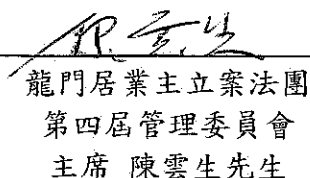 龍門居業主立案法團
第四屆管理委員會
主席 陳雲生先生